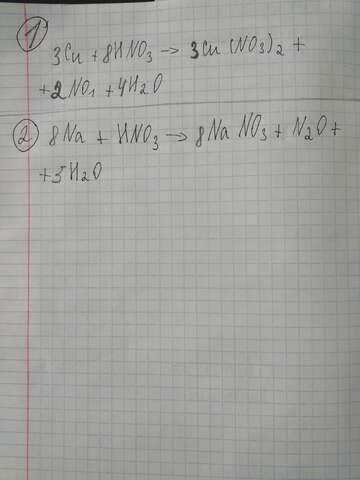 1) 3Cu + 8HNO3 → 3Cu(NO3)2 +
+ 2NO1 + 4H2O
2) 8Na + HNO3 → 8NaNO3 + N2O +
+ 5H2O